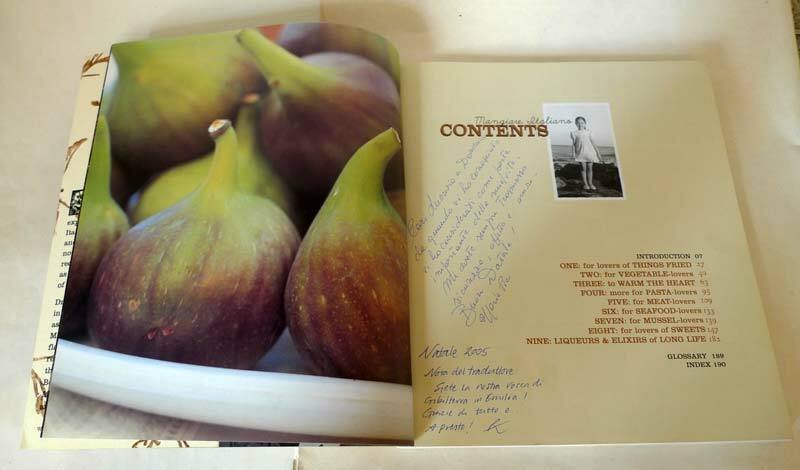 Mangiare Italiano
CONTENTS
Cari
da quando vi ho conosciuto
vi ho considerati come parte
della
Mi avete sempre trasmesso
e amore.
Buon Natale!
Natale 2005
Nota del traduttore
Siete la nostra rocca di
Gibilterra in Emilia!
Grazie di tutto e
A presto!
INTRODUCTION 07
ONE: for lovers of THINGS FRIED 17
TWO: for VEGETABLE-lovers 40
THREE: to WARM THE HEART 63
FOUR: more for PASTA-lovers 95
FIVE: for MEAT-lovers 109
SIX: for SEAFOOD-lovers 133
SEVEN: for MUSSEL-lovers 139
EIGHT: for lovers of SWEETS 147
NINE: LIQUEURS & ELIXIRS of LONG LIFE 181
GLOSSARY 189
INDEX 190